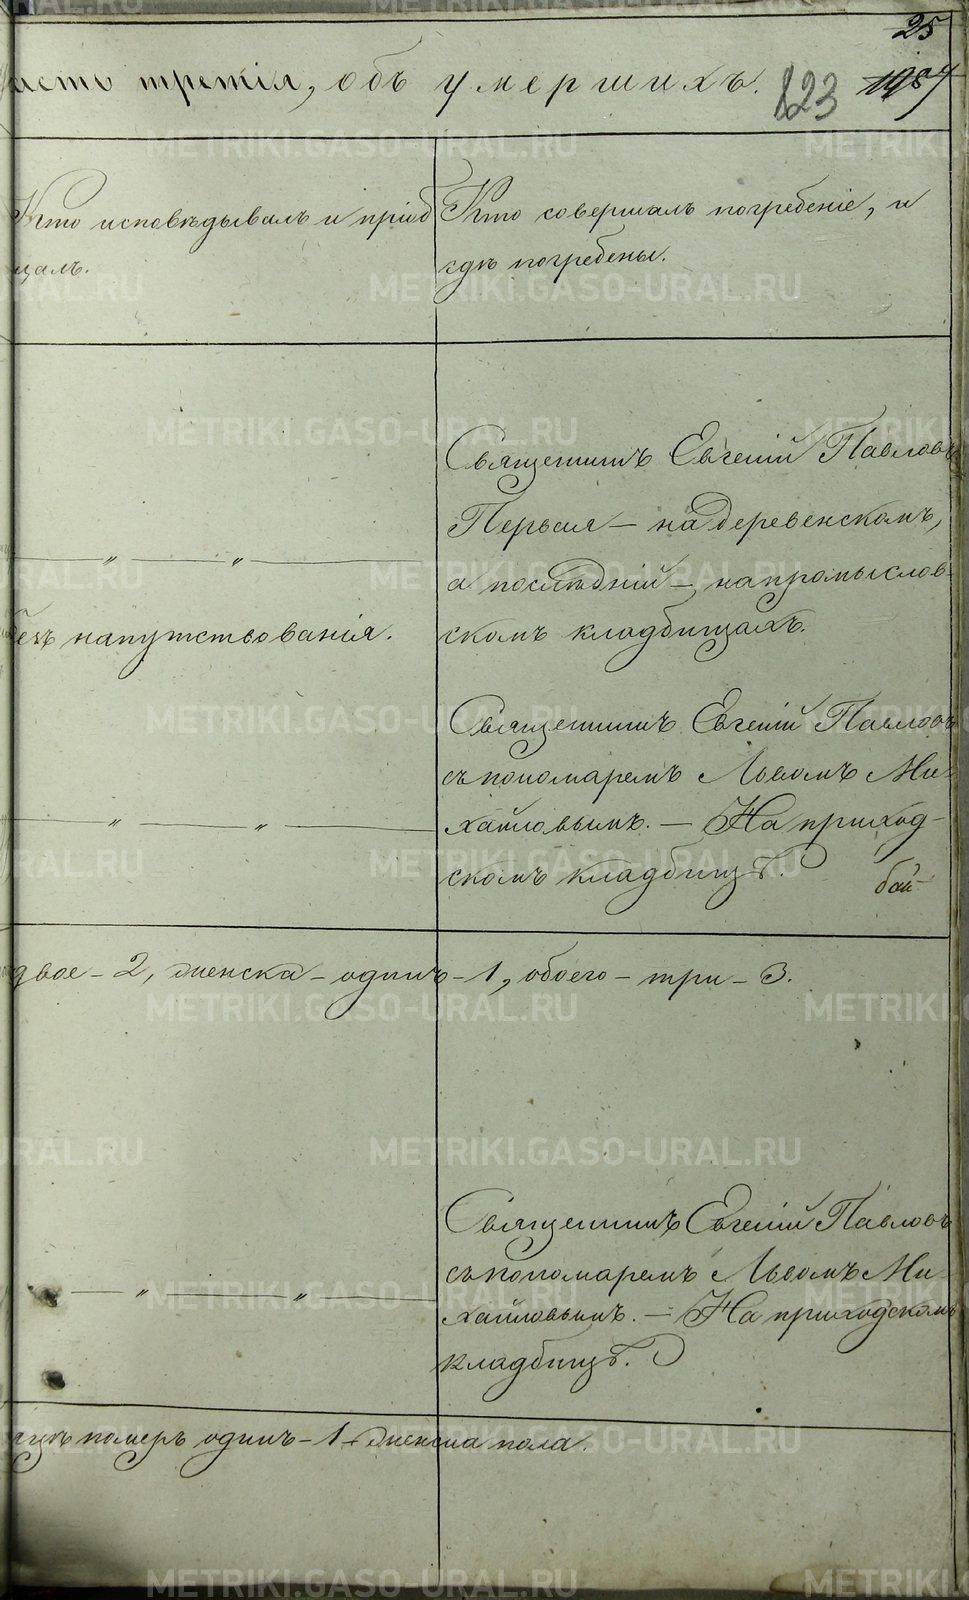 25
асть третія, объ умершихъ. 823
Кто исповѣдывалъ и пріоб
щалъ.
Кто совершалъ погребеніе, и
гдѣ погребены.
Священникъ Евгеній Павловъ
Первая — на деревенскомъ,
а послѣдній — на промыслов-
скомъ кладбищахъ.
— „ — „ —
безъ напутствованія.
Священникъ Евгеній Павловъ
съ пономаремъ Львомъ Ми-
хайловымъ. — На приход-
скомъ кладбищѣ.
— „ — „ —
двое – 2, женска – одинъ – 1, обоего – три – 3.
Священникъ Евгеній Павловъ
съ пономаремъ Львомъ Ми-
хайловымъ. — На приходскомъ
кладбищѣ.
— „ — „ —
яцѣ померъ одинъ – 1 – женска пола.
METRIKI.GASO-URAL.RU